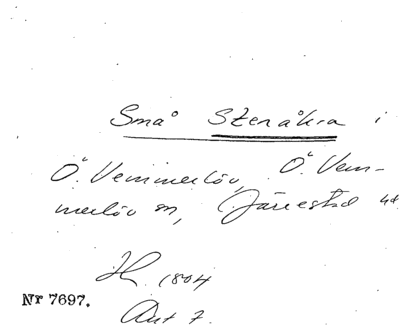 Små Stenåkra i
Ö. Vemmerlöv, Ö. Vem-
merlöv sn, Järrestad hd
H. 1804
Nr 7697.
Akt 7.